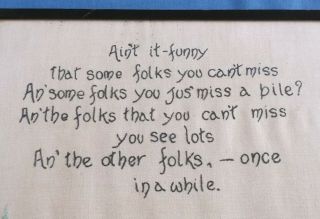 Ain't it-funny
that some folks you can't miss
An' some folks you jus' miss a pile?
An' the folks that you can't miss
you see lots
An' the other folks, — once
in a while.